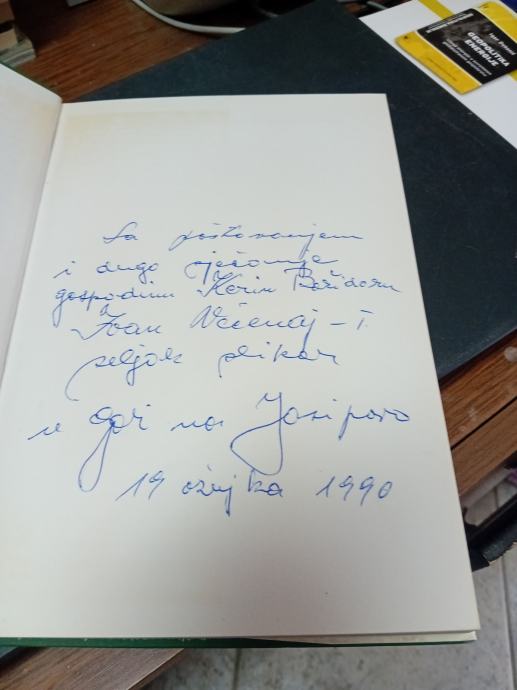 Sa poštovanjem
i dugo sjećanje
gospodinu Kerin Božidaru
Ivan Večenaj - T.
seljak slikar
u Goli na Josipovo
19 ožujka 1990
GEOPOLITIKA
ENERGIJE